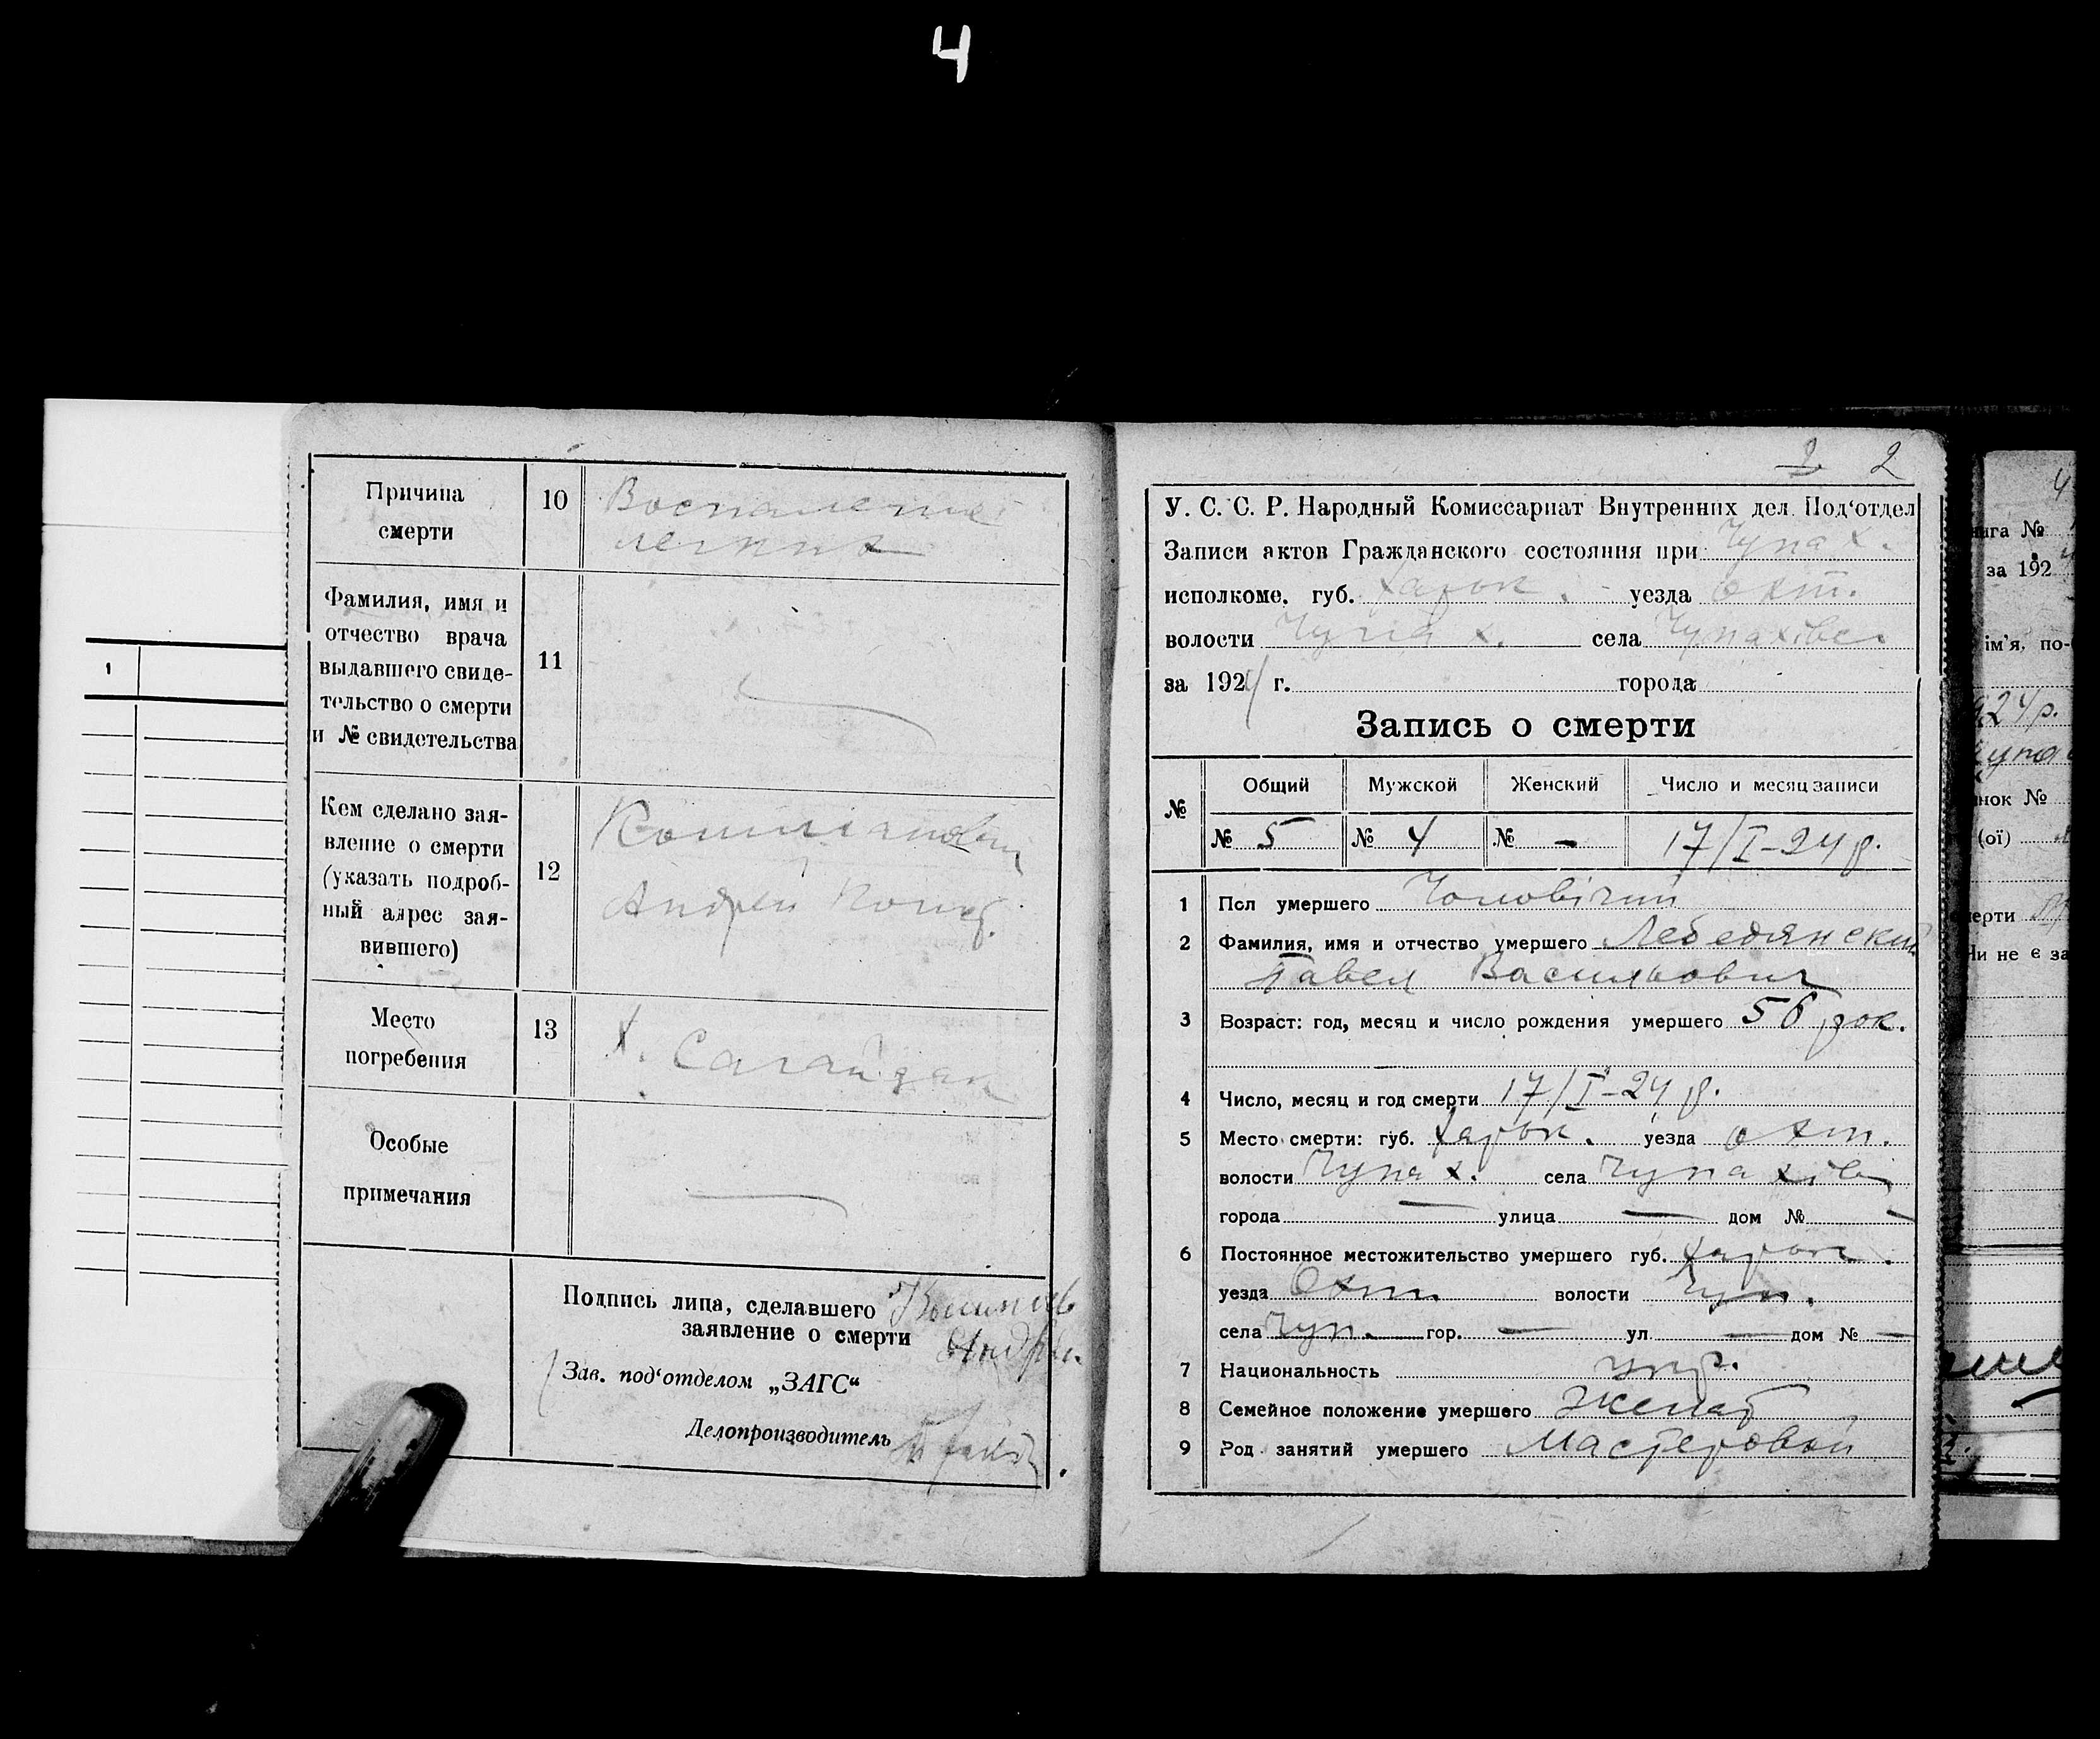 4
1
Причина
смерти
10
Воспаление
легких
Фамилия, имя и
отчество врача
выдавшего свиде-
тельство о смерти
и № свидетельства
11
Кем сделано зая-
вление о смерти
(указать подроб-
ный адрес зая-
вившего)
12
Андрей
Место
погребения
13
х. Сагайдак
Особые
примечания
—
Подпись лица, сделавшего
заявление о смерти
Зав. под‘отделом „ЗАГС“
Делопроизводитель
2 2
У. С. С. Р. Народный Комиссариат Внутренних дел. Под‘отдел
Записи актов Гражданского состояния при Чупах.
исполкоме, губ. Харьк. уезда Охт.
волости Чупах. села
за 1924 г. города
Запись о смерти
№ Общий Мужской Женский Число и месяц записи
№ 5 № 4 № - 17/I-24 р.
1 Пол умершего Чоловічий
2 Фамилия, имя и отчество умершего Лебедянский
Павел Васильович
3 Возраст: год, месяц и число рождения умершего 56 рок.
4 Число, месяц и год смерти 17/I-24 р.
5 Место смерти: губ. Харьк. уезда Охт.
волости Чупах. села Чупахівц
города — улица — дом № —
6 Постоянное местожительство умершего губ. Харьк.
уезда Охт. волости Чуп.
села Чуп. гор. — ул. — дом № —
7 Национальность укр.
8 Семейное положение умершего Женат
9 Род занятий умершего Мастеровой
нига №
за 192
ім’я, по-
924 р.
нок №
(ої)
мерти
Чи не є за